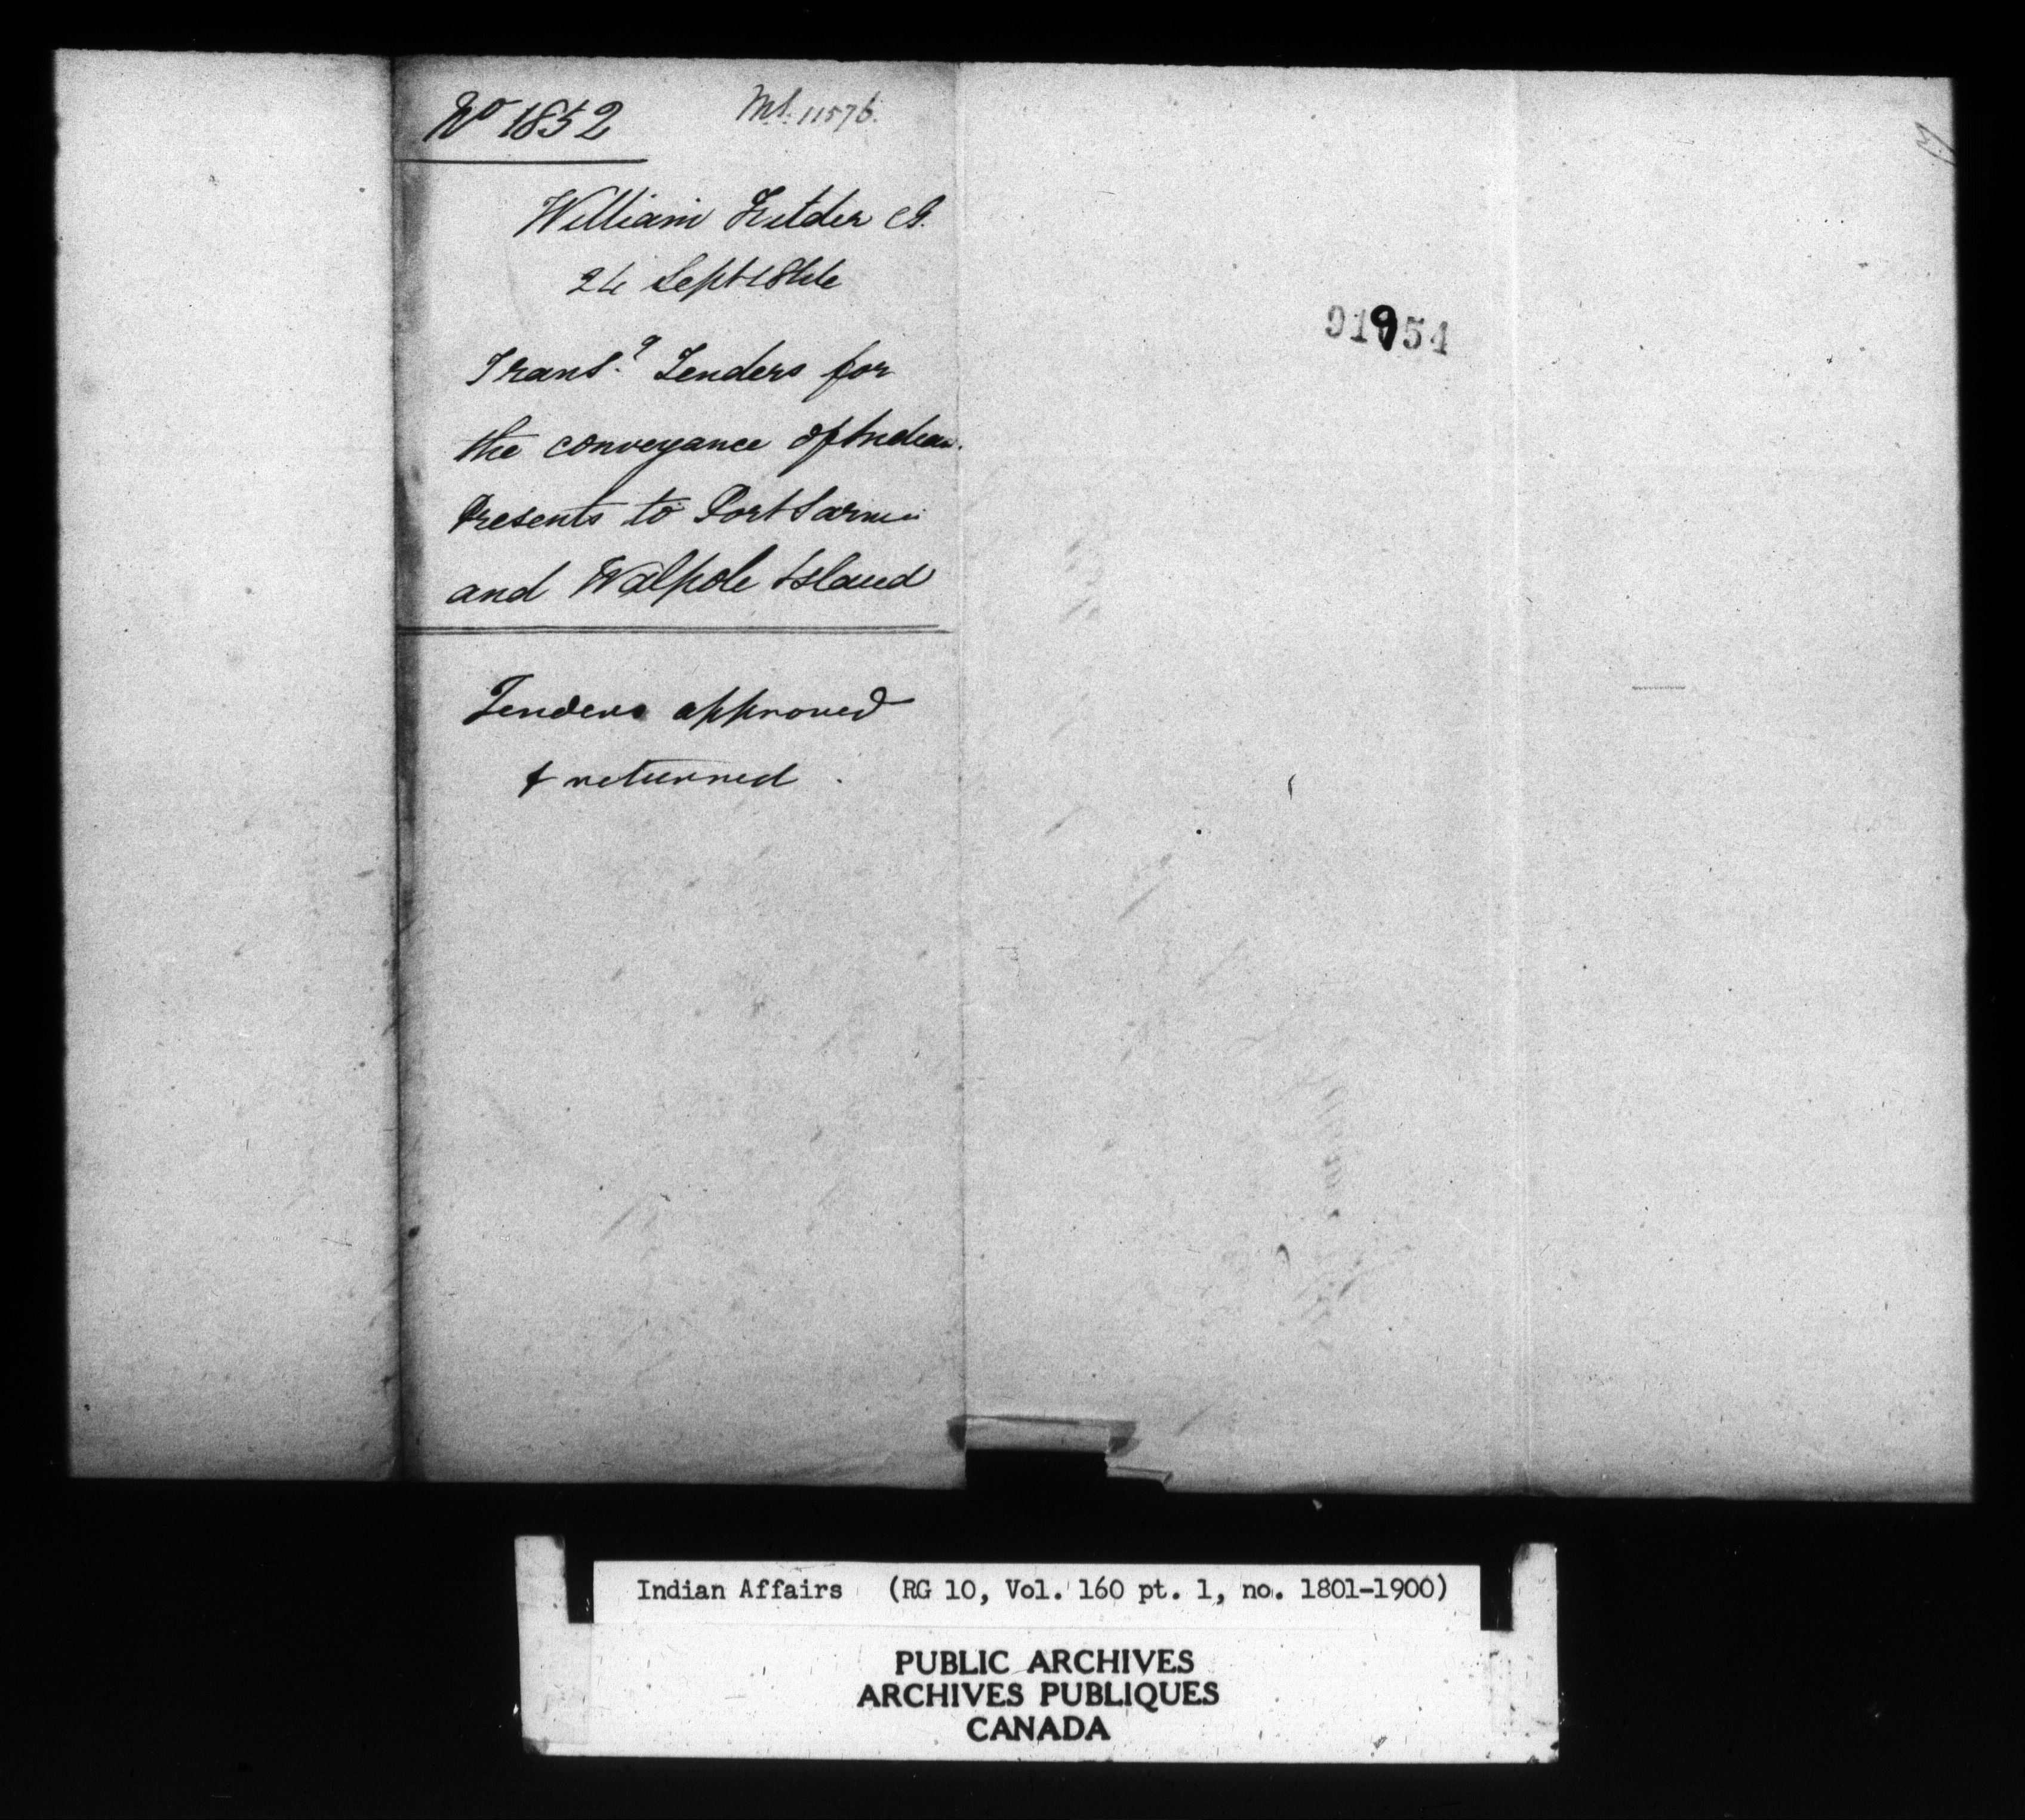 No 1852
M.S. 11576.
William
24 Sept 1846
Trans.g Tenders for
the conveyance of Indian
Presents to Port Sarnia
and Walpole Island
Tenders approved
& returned.
91954
Indian Affairs (RG 10, Vol. 160 pt. 1, no. 1801-1900)
PUBLIC ARCHIVES
ARCHIVES PUBLIQUES
CANADA